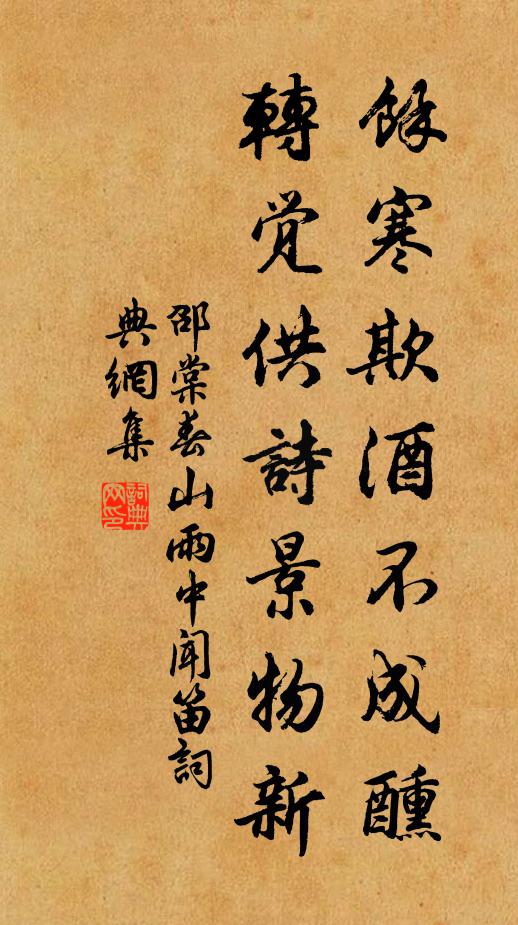 餘寒欺酒不成醺
轉覚供詩景物新
邵棠春山雨中聞笛詞
典網集
詞典
网印